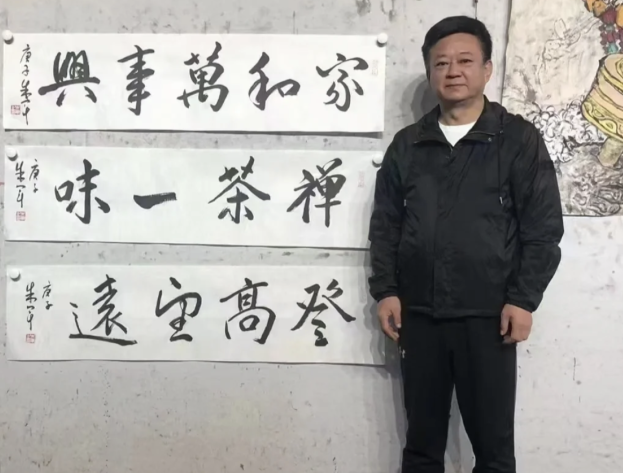 家和萬事興
庚子 朱军
禅茶一味
庚子
朱军
登高望遠
庚子
朱军